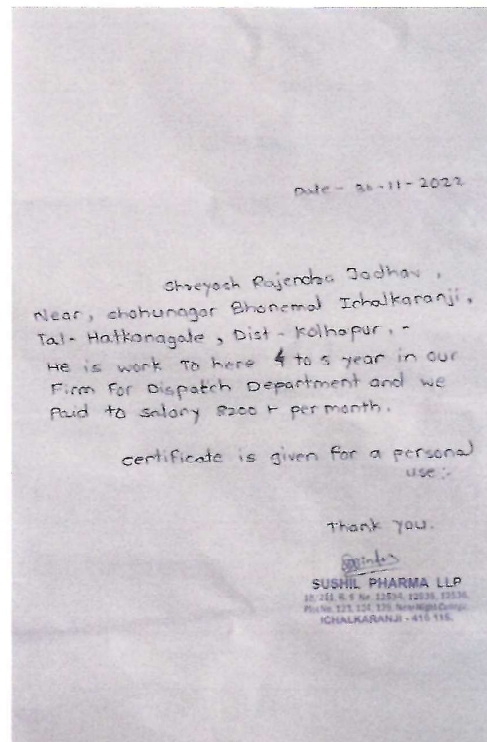 Date - 30-11-2022
Shreyash Rajendra Jadhav,
Near, shahunagar Bhonemal Ichalkaranji,
Tal- Hatkanagale, Dist - Kolhapur. -
He is work To here 4 to 5 year in our
Firm For Dispatch Department and we
Paid to salary 8200 + per month.
certificate is given for a personal
use :-
Thank you.
SUSHIL PHARMA LLP
ICHALKARANJI - 416 115.